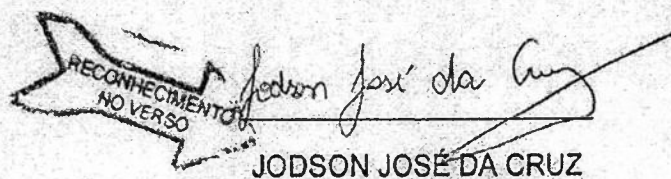 RECONHECIMENTO
NO VERSO
Jodson José da Cruz
JODSON JOSÉ DA CRUZ